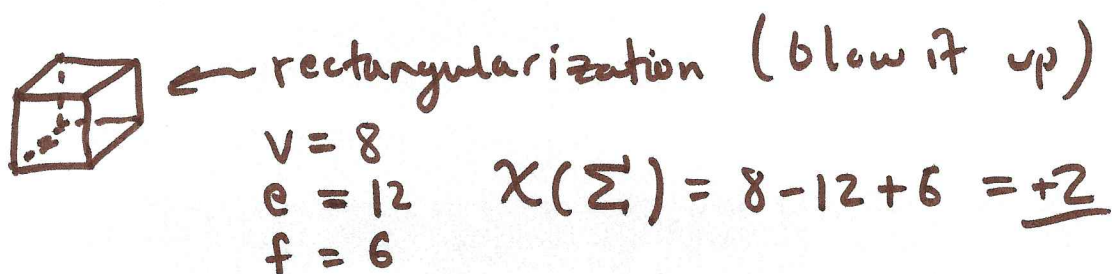 ← rectangularization (blow it up)
v = 8
e = 12 χ(Σ) = 8-12+6 = +2
f = 6